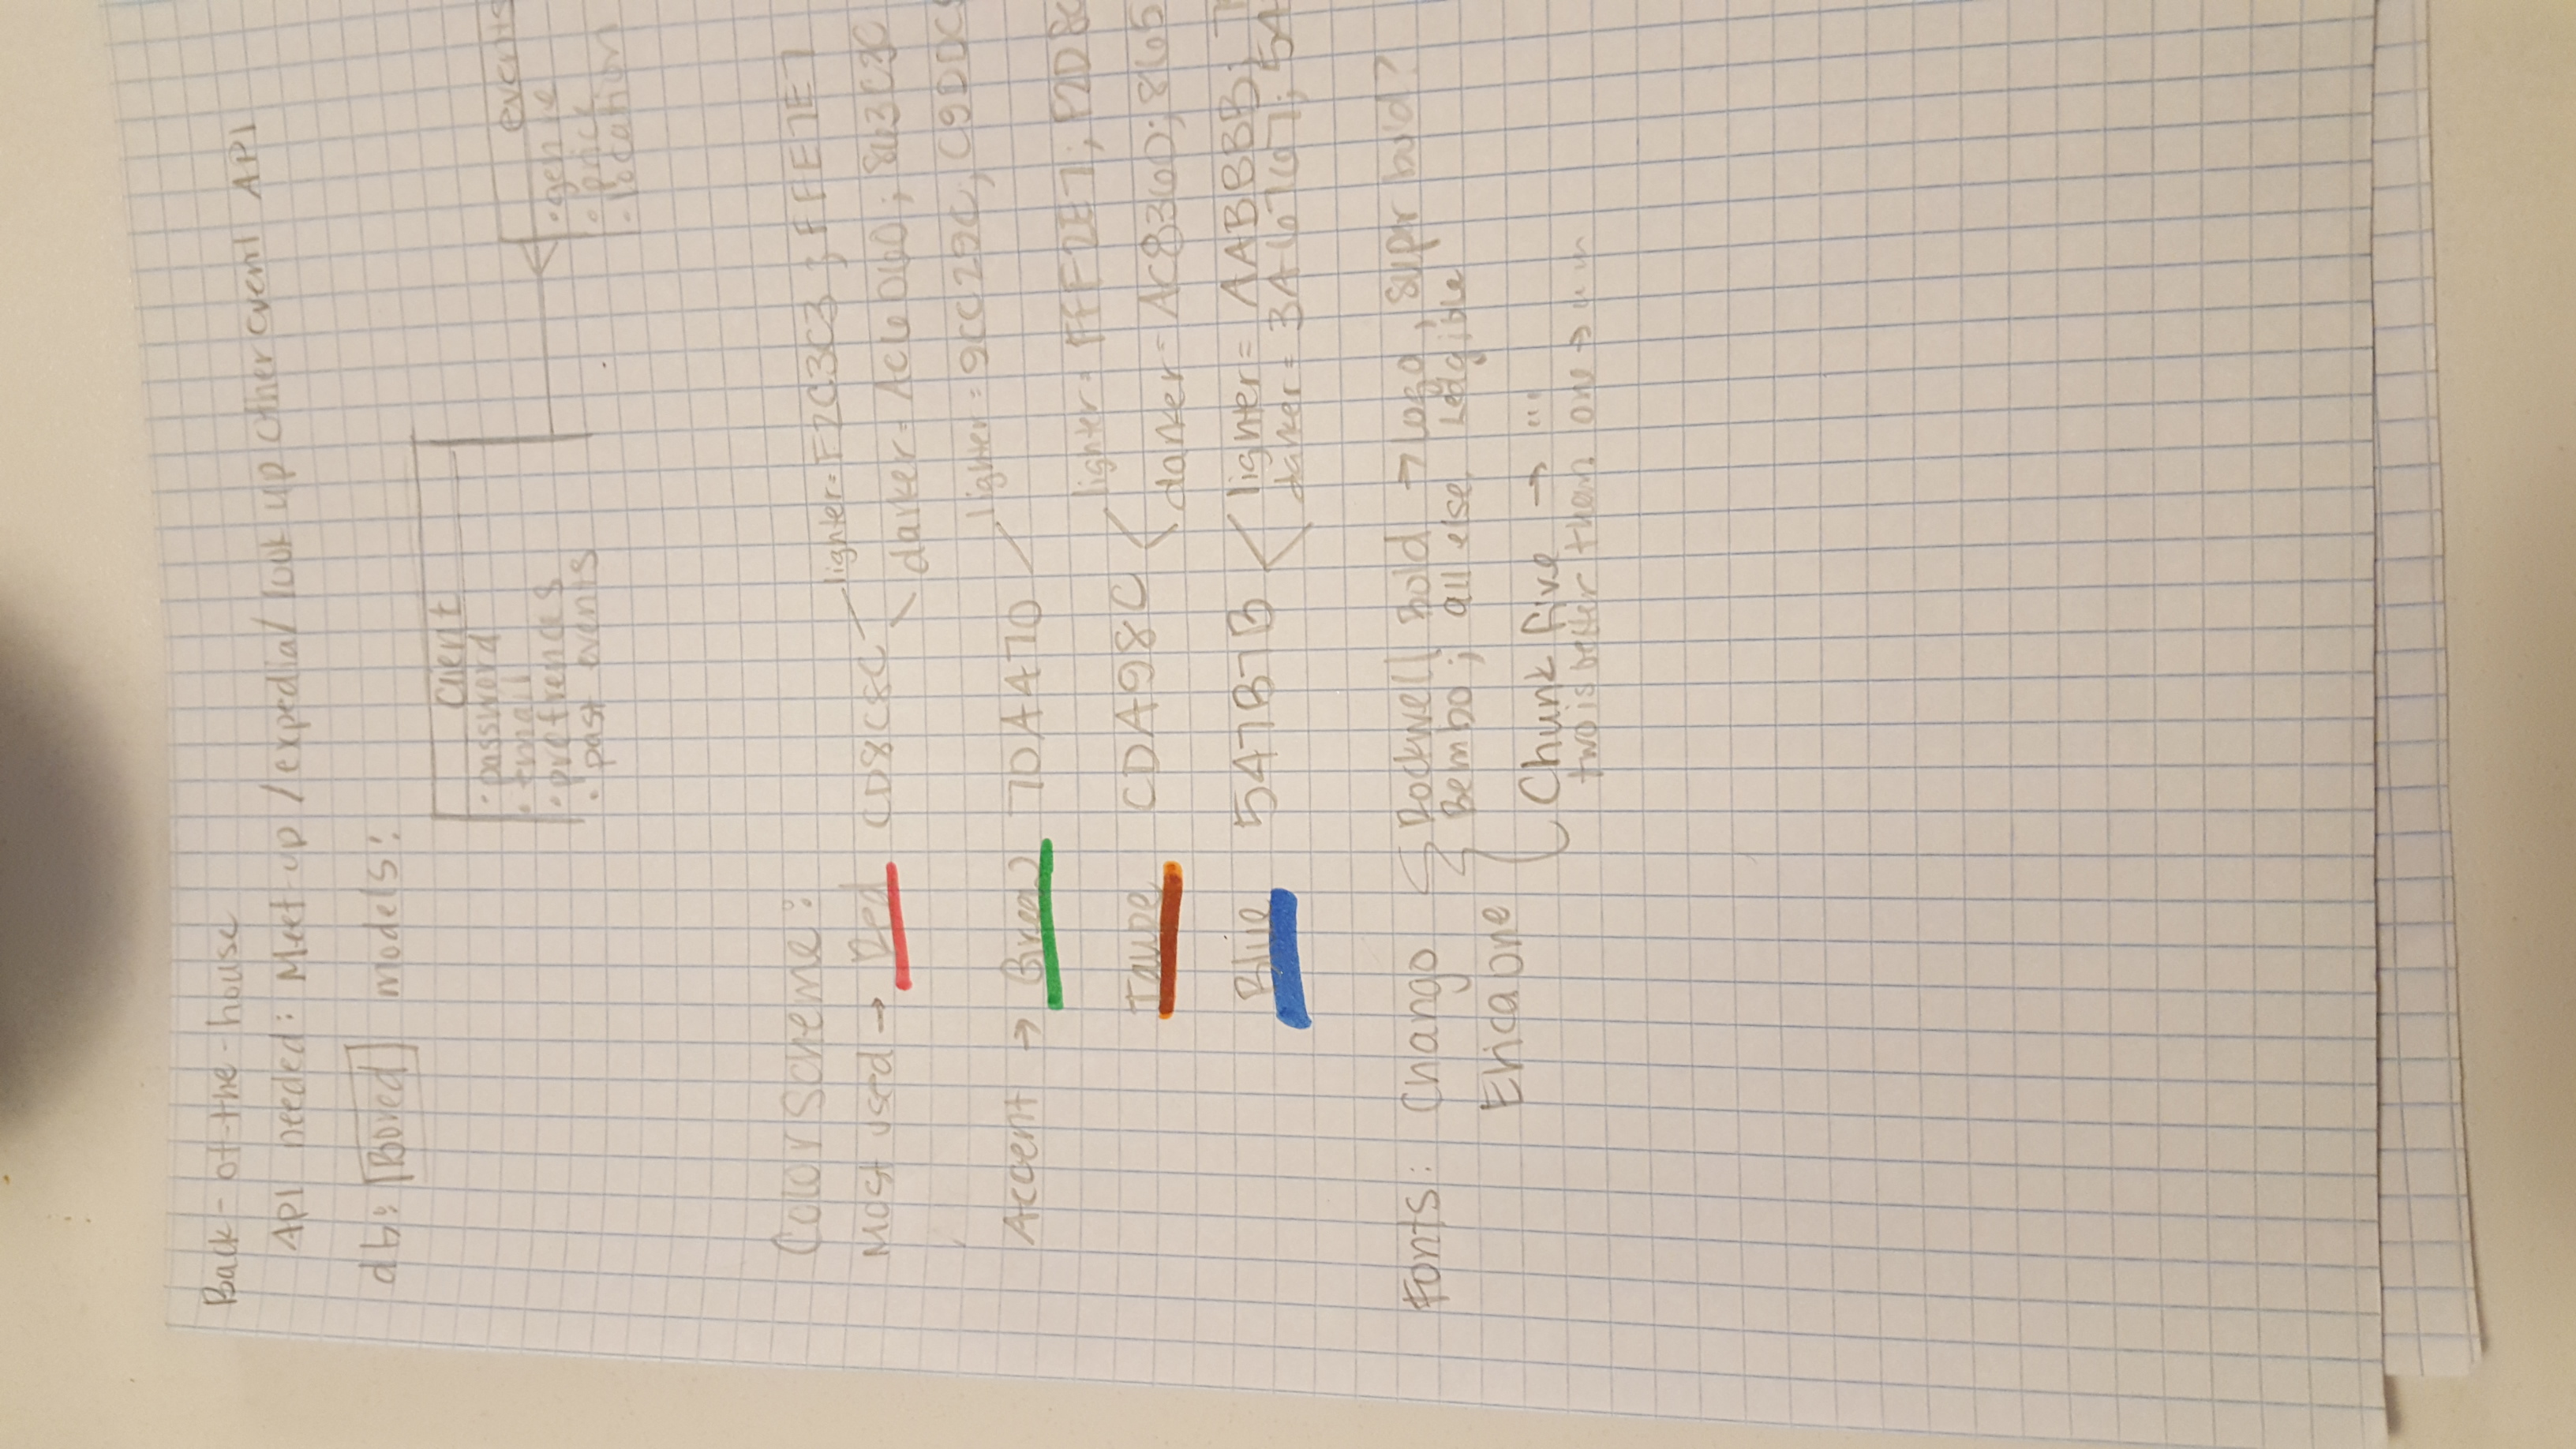 Back-of-the-house
API needed: Meet-up / expedia / look up other event API
db: Bored models:
Client
• password
• email
• prefrences
• past events
events
• genre
• price
• location
Color scheme:
Most used → Red CD8C8C
lighter = F2C3C3 ; FFE7E7
darker = AC6060 ; 863C3C
Accent → Green 70A470
lighter = 9CC29C; C9DDC
Taupe CDA98C
lighter = FFF2E7; F2D8C
darker = AC8360; 865
Blue 547B7B
lighter = AABBBB;
darker = 3A6767; 54
Fonts: Chango Rockwell Bold → Logo, super bold?
Bembo; all else. Ledgible
Erica one
Chunk five → "..
two is better than one → " "